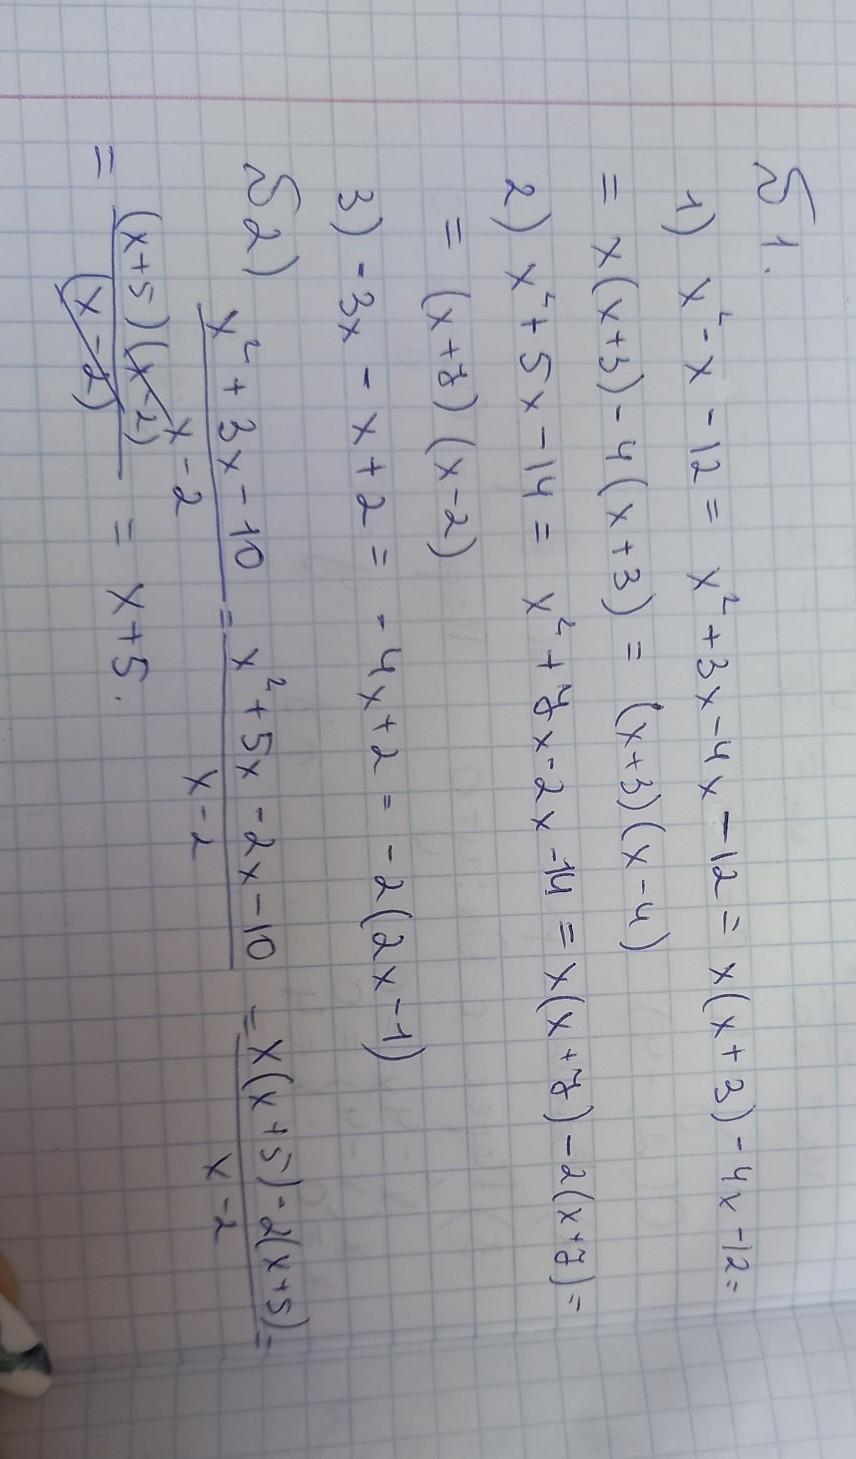 №1.
1) x² - x - 12 = x² + 3x - 4x - 12 = x(x + 3) - 4x - 12 =
= x(x+3) - 4(x + 3) = (x+3)(x - 4)
2) x² + 5x - 14 = x² + 7x - 2x - 14 = x(x + 7) - 2(x+7) =
= (x+7)(x-2)
3) -3x - x + 2 = -4x + 2 = -2(2x - 1)
№2) (x² + 3x - 10)/(x - 2) = (x² + 5x - 2x - 10)/(x - 2) = (x(x+5) - 2(x+5))/(x - 2) =
= ((x+5)(x-2))/(x-2) = x+5.